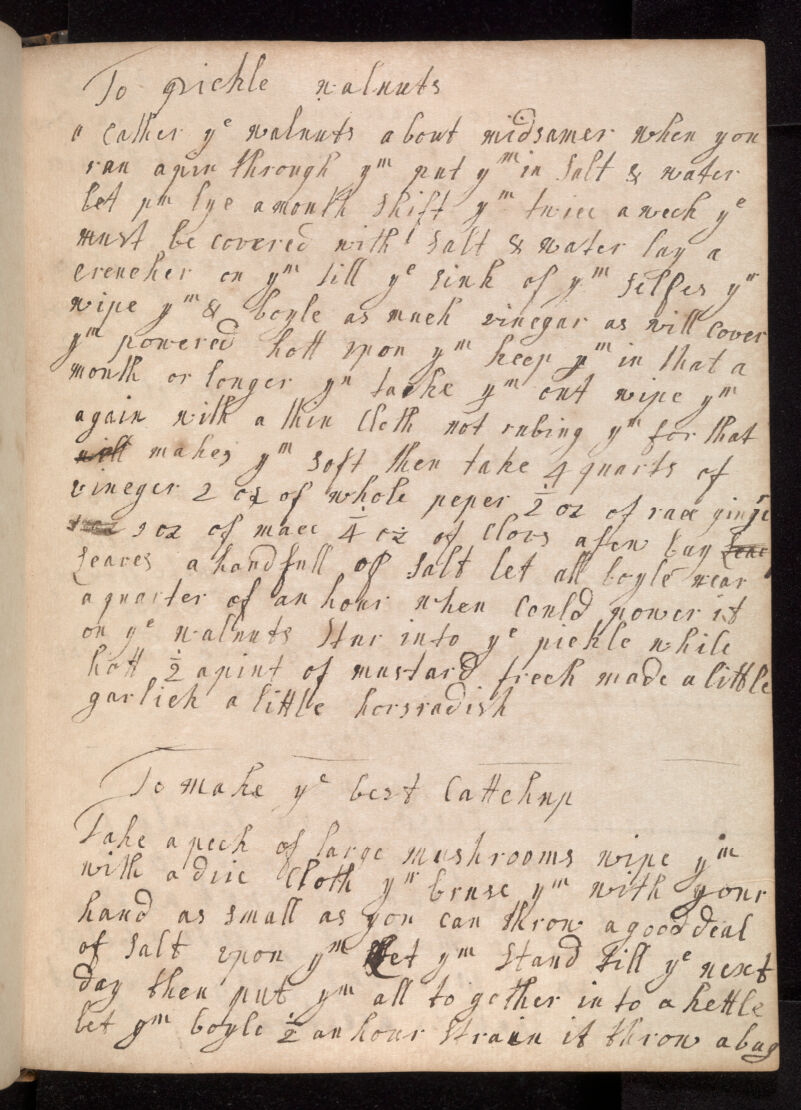 To pickle walnuts
a Cather yᵉ walnuts about midsamer when you
can a pin through yᵐ put yᵐ in salt & water
let yᵐ lye a month shift yᵐ twice a week yᵉ
must be covered with salt & water lay a
trencher on yᵐ till yᵉ sink of yᵐ selfes yⁿ
wipe yᵐ & boyle as much vinegar as will cover
yᵐ powered hott upon yᵐ keep yᵐ in that a
month or longer yⁿ tacke yᵐ out wipe yᵐ
again with a thin Cloth not rubing yᵐ for that
makes yᵐ soft then take 4 quarts of
vineger 2 oz of whole peper ½ oz of race ginje
2 oz of mace ¼ oz of Clovs a few bay
Leaves a handfull of salt let all boyle near
a quarter of an hour when Could power it
on yᵉ walnuts Stur into yᵉ pickle while
hott ½ a pint of mustard fresh made a little
garlick a little horsradish
To make yᵉ best Cattchup
Take a peck of large mushrooms wipe yᵐ
with a drie Cloth yⁿ bruse yᵐ with your
hand as small as you can throw a good deal
of salt upon yᵐ Let yᵐ stand till yᵉ next
day then put yᵐ all to gether in to a kettle
let yᵐ boyle ½ an hour strain it throw a bag